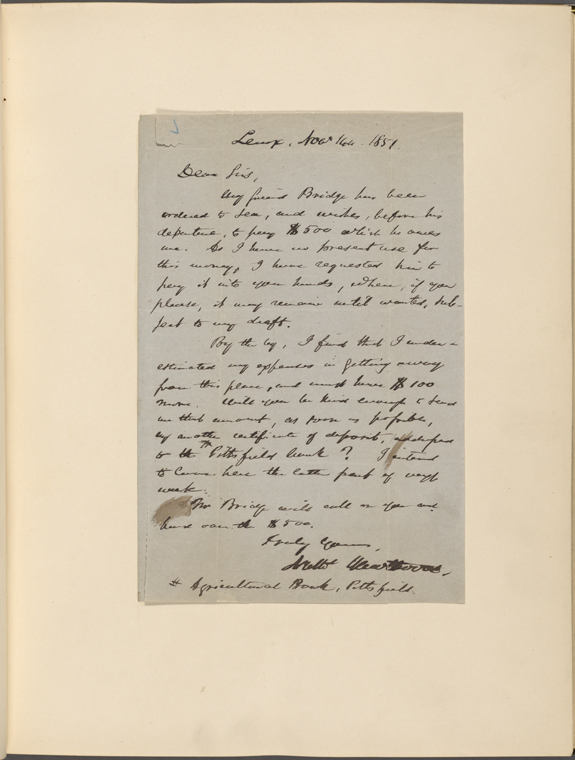 Lenox, Novr 14th 1851.
Dear Sir,
My friend Bridge has been
ordered to sea, and wishes, before his
departure, to pay $500 which he owes
me. As I have no present use for
this money, I have requested him to
pay it into your hands, where, if you
please, it may remain until wanted, sub-
ject to my draft.
By the by, I find that I under-
estimated my expenses in getting away
from this place, and must have $100
more. Will you be kind enough to send
me that amount, as soon as possible,
by another certificate of deposit, addressed
to the # Pittsfield bank? I intend
to leave here the latter part of next
week.
Mr Bridge will call on you and
hand over the $500.
Truly Yours,
Nathl Hawthorne.
# Agricultural Bank, Pittsfield.